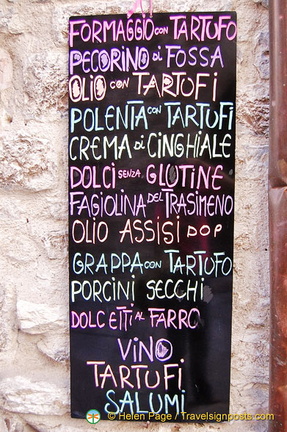 FORMAGGIO CON TARTUFO
PECORINO DI FOSSA
OLIO CON TARTUFI
POLENTA CON TARTUFI
CREMA DI CINGHIALE
DOLCI SENZA GLUTINE
FAGIOLINA DEL TRASIMENO
OLIO ASSISI DOP
GRAPPA CON TARTUFO
PORCINI SECCHI
DOLCETTI AL FARRO
VINO
TARTUFI
SALUMI
© Helen Page / Travelsignposts.com